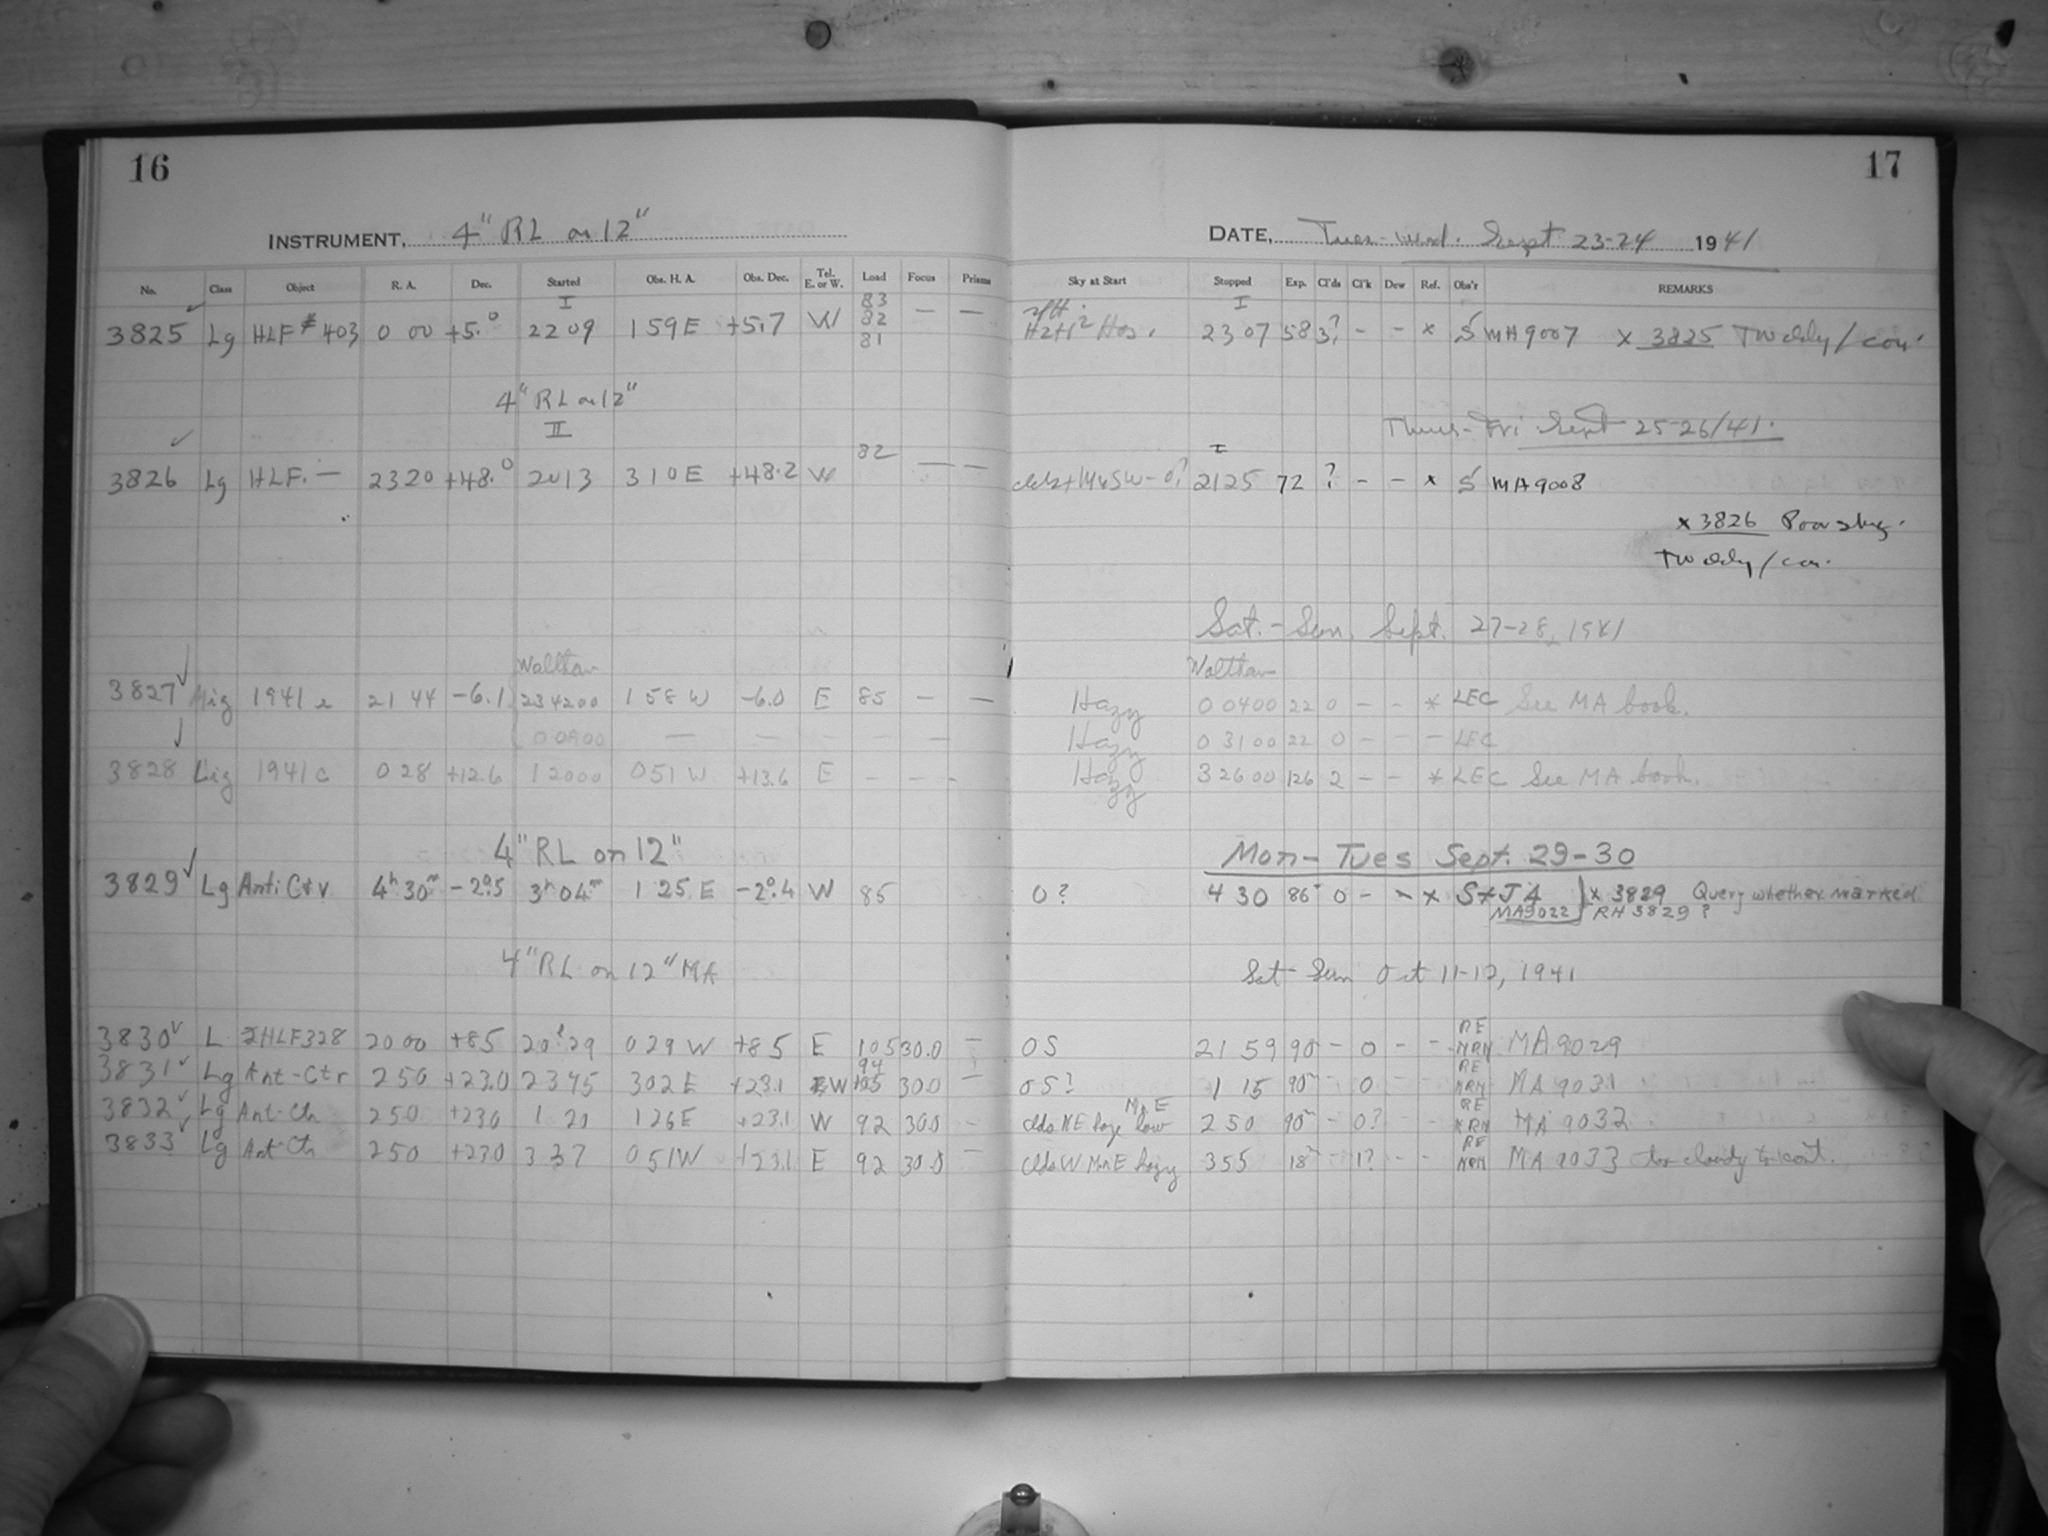 16
17
INSTRUMENT, 4" RL on 12"
DATE, Tues-Wed. Sept 23-24 1941
No. Class Object R. A. Dec. Started Obs. H. A. Obs. Dec. Tel. E. or W. Load Focus Prisms Sky at Start Stopped Exp. Cl'ds Cl'k Dew Ref. Obs'r REMARKS
I 83 I
3825 Lg HLF # 403 0 00 +5.° 22 09 1 59 E +5.7 W 82 — — 23 07 58 3? - - x S MA 9007 x 3825
81
4" RL on 12"
Thurs-Fri Sept 25-26/41.
II 82 I
3826 Lg HLF. — 23 20 +48.° 20 13 3 10 E +48.2 W — — 21 25 72 ? - - x S MA 9008
x 3826 Poor sky.
Sat.-Sun. Sept. 27-28, 1941
Waltham Waltham
3827 1941 21 44 -6.1 23 42 00 1 58 W -6.0 E 85 — — Hazy 0 04 00 22 0 - - * LEC See MA book.
0 09 00 — — - - — Hazy 0 31 00 22 0 - - - LEC
3828 1941 c 0 28 +12.6 1 20 00 0 51 W +13.6 E - - - Hazy 3 26 00 126 2 - - * LEC See MA book.
4" RL on 12" Mon-Tues Sept. 29-30
3829 Lg Anti Ctr. 4h 30m -2°.5 3h 04m 1 25 E -2°.4 W 85 0? 4 30 86 0 - - x S+JA x 3829 Query whether marked
MA9022 RH 3829 ?
4" RL on 12" MA Sat-Sun Oct 11-12, 1941
3830 L HLF328 20 00 +85 20 29 0 29 W +85 E 105 30.0 — OS 21 59 90 - 0 - - RE NRM MA 9029
3831 Lg Ant-Ctr 2 50 +23.0 23 45 3 02 E +23.1 W 94 105 30.0 — OS? 1 15 90m - 0 - - RE NRM MA 9031
3832 Lg Ant-Ctr 2 50 +23.0 1 20 1 26 E +23.1 W 92 30.0 - clds NE haze low 2 50 90m - 0? - - RE NRM MA 9032
3833 Lg Ant Ctr 2 50 +23.0 3 37 0 51 W +23.1 E 92 30.0 — clds W hazy 3 55 18m - 1? - - RE NRM MA 9033 too cloudy to cont.